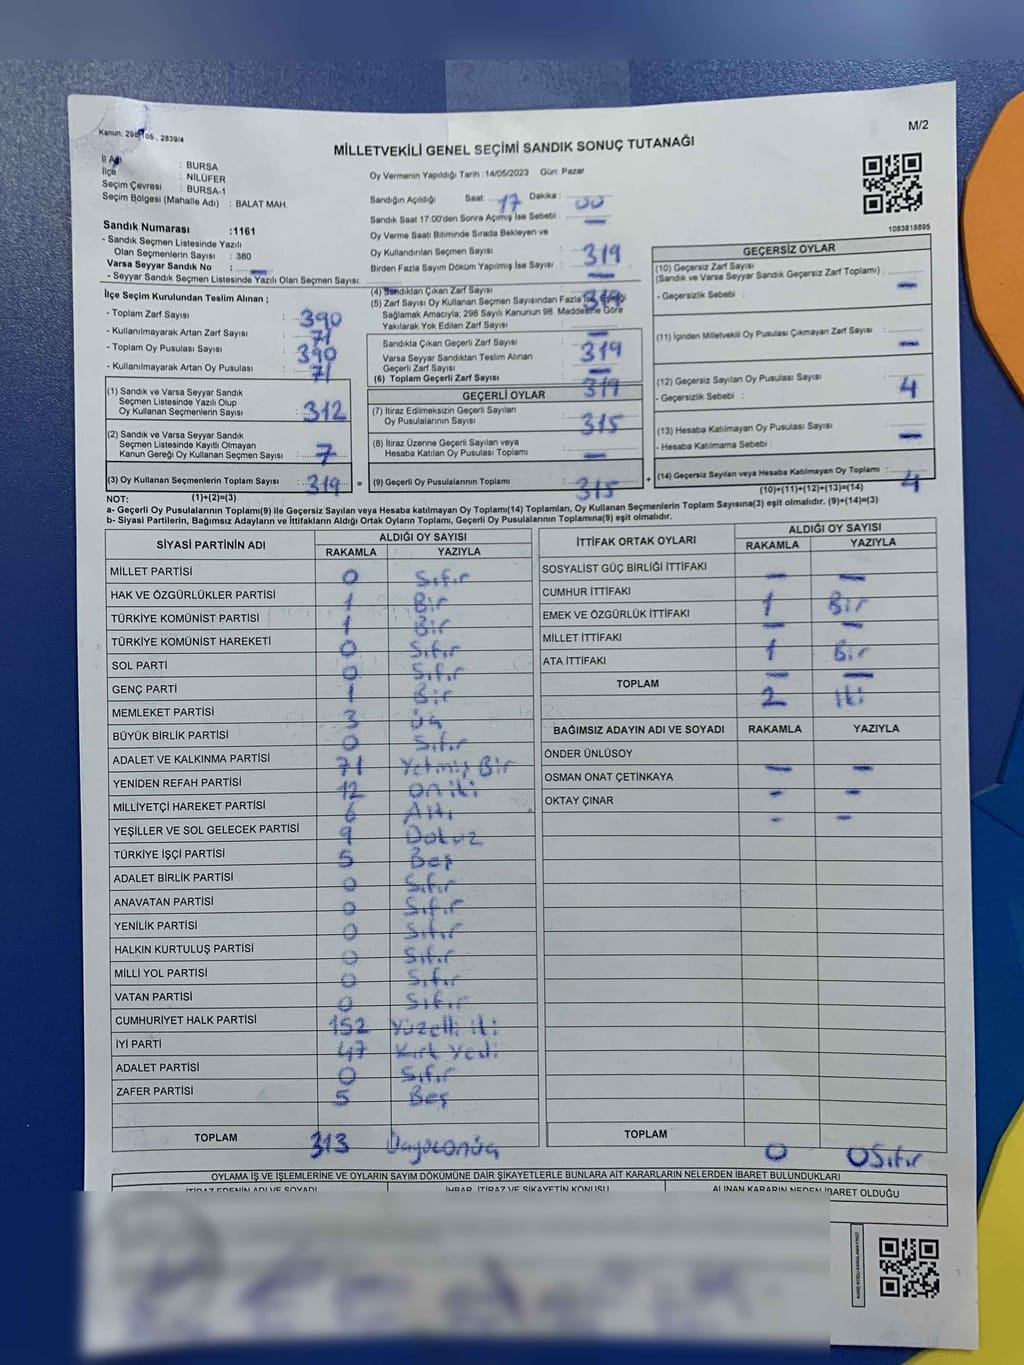 Kanun: 298, 2839/4
M/2
MİLLETVEKİLİ GENEL SEÇİMİ SANDIK SONUÇ TUTANAĞI
İl Adı : BURSA
İlçe : NİLÜFER
Seçim Çevresi : BURSA-1
Seçim Bölgesi (Mahalle Adı) : BALAT MAH.
Oy Vermenin Yapıldığı Tarih :14/05/2023 Gün: Pazar
Sandığın Açıldığı Saat: 17 Dakika : 00
Sandık Saat 17:00'den Sonra Açılmış İse Sebebi : —
Sandık Numarası :1161
- Sandık Seçmen Listesinde Yazılı
Olan Seçmenlerin Sayısı : 380
Varsa Seyyar Sandık No : —
- Seyyar Sandık Seçmen Listesinde Yazılı Olan Seçmen Sayısı:
Oy Verme Saati Bitiminde Sırada Bekleyen ve
Oy Kullandırılan Seçmen Sayısı : 319
Birden Fazla Sayım Döküm Yapılmış İse Sayısı : —
1083818895
İlçe Seçim Kurulundan Teslim Alınan ;
- Toplam Zarf Sayısı : 390
- Kullanılmayarak Artan Zarf Sayısı : 71
- Toplam Oy Pusulası Sayısı : 390
- Kullanılmayarak Artan Oy Pusulası : 71
(1) Sandık ve Varsa Seyyar Sandık
Seçmen Listesinde Yazılı Olup
Oy Kullanan Seçmenlerin Sayısı : 312
(2) Sandık ve Varsa Seyyar Sandık
Seçmen Listesinde Kayıtlı Olmayan
Kanun Gereği Oy Kullanan Seçmen Sayısı : 7
(3) Oy Kullanan Seçmenlerin Toplam Sayısı : 319 =
(1)+(2)=(3)
(4) Sandıktan Çıkan Zarf Sayısı : 319
(5) Zarf Sayısı Oy Kullanan Seçmen Sayısından Fazla İse, Eşitliği
Sağlamak Amacıyla; 298 Sayılı Kanunun 98. Maddesine Göre
Yakılarak Yok Edilen Zarf Sayısı : —
Sandıkta Çıkan Geçerli Zarf Sayısı : 319
Varsa Seyyar Sandıktan Teslim Alınan
Geçerli Zarf Sayısı : —
(6) Toplam Geçerli Zarf Sayısı : 319
GEÇERLİ OYLAR
(7) İtiraz Edilmeksizin Geçerli Sayılan
Oy Pusulalarının Sayısı : 315
(8) İtiraz Üzerine Geçerli Sayılan veya
Hesaba Katılan Oy Pusulası Toplamı : —
(9) Geçerli Oy Pusulalarının Toplamı : 315 +
GEÇERSİZ OYLAR
(10) Geçersiz Zarf Sayısı
(Sandık ve Varsa Seyyar Sandık Geçersiz Zarf Toplamı) : —
- Geçersizlik Sebebi :
(11) İçinden Milletvekili Oy Pusulası Çıkmayan Zarf Sayısı : —
(12) Geçersiz Sayılan Oy Pusulası Sayısı : 4
- Geçersizlik Sebebi :
(13) Hesaba Katılmayan Oy Pusulası Sayısı : —
- Hesaba Katılmama Sebebi :
(14) Geçersiz Sayılan veya Hesaba Katılmayan Oy Toplamı : 4
(10)+(11)+(12)+(13)=(14)
NOT:
a- Geçerli Oy Pusulalarının Toplamı(9) ile Geçersiz Sayılan veya Hesaba Katılmayan Oy Toplamı(14) Toplamları, Oy Kullanan Seçmenlerin Toplam Sayısına(3) eşit olmalıdır. (9)+(14)=(3)
b- Siyasi Partilerin, Bağımsız Adayların ve İttifakların Aldığı Ortak Oyların Toplamı, Geçerli Oy Pusulalarının Toplamına(9) eşit olmalıdır.
SİYASİ PARTİNİN ADI ALDIĞI OY SAYISI
RAKAMLA YAZIYLA
MİLLET PARTİSİ 0 Sıfır
HAK VE ÖZGÜRLÜKLER PARTİSİ 1 Bir
TÜRKİYE KOMÜNİST PARTİSİ 1 Bir
TÜRKİYE KOMÜNİST HAREKETİ 0 Sıfır
SOL PARTİ 0 Sıfır
GENÇ PARTİ 1 Bir
MEMLEKET PARTİSİ 3 üç
BÜYÜK BİRLİK PARTİSİ 0 Sıfır
ADALET VE KALKINMA PARTİSİ 71 Yetmiş Bir
YENİDEN REFAH PARTİSİ 12 on iki
MİLLİYETÇİ HAREKET PARTİSİ 6 Altı
YEŞİLLER VE SOL GELECEK PARTİSİ 9 Dokuz
TÜRKİYE İŞÇİ PARTİSİ 5 Beş
ADALET BİRLİK PARTİSİ 0 Sıfır
ANAVATAN PARTİSİ 0 Sıfır
YENİLİK PARTİSİ 0 Sıfır
HALKIN KURTULUŞ PARTİSİ 0 Sıfır
MİLLİ YOL PARTİSİ 0 Sıfır
VATAN PARTİSİ 0 Sıfır
CUMHURİYET HALK PARTİSİ 152 Yüzelli iki
İYİ PARTİ 47 Kırk Yedi
ADALET PARTİSİ 0 Sıfır
ZAFER PARTİSİ 5 Beş
TOPLAM 313
İTTİFAK ORTAK OYLARI ALDIĞI OY SAYISI
RAKAMLA YAZIYLA
SOSYALİST GÜÇ BİRLİĞİ İTTİFAKI — —
CUMHUR İTTİFAKI 1 Bir
EMEK VE ÖZGÜRLÜK İTTİFAKI — —
MİLLET İTTİFAKI 1 Bir
ATA İTTİFAKI — —
TOPLAM 2 İki
BAĞIMSIZ ADAYIN ADI VE SOYADI RAKAMLA YAZIYLA
ÖNDER ÜNLÜSOY — —
OSMAN ONAT ÇETİNKAYA - -
OKTAY ÇINAR - -
TOPLAM 0 0Sıfır
OYLAMA İŞ VE İŞLEMLERİNE VE OYLARIN SAYIM DÖKÜMÜNE DAİR ŞİKAYETLERLE BUNLARA AİT KARARLARIN NELERDEN İBARET BULUNDUKLARI
İTİRAZ EDENİN ADI VE SOYADI İHBAR, İTİRAZ VE ŞİKAYETİN KONUSU ALINAN KARARIN NEDEN İBARET OLDUĞU